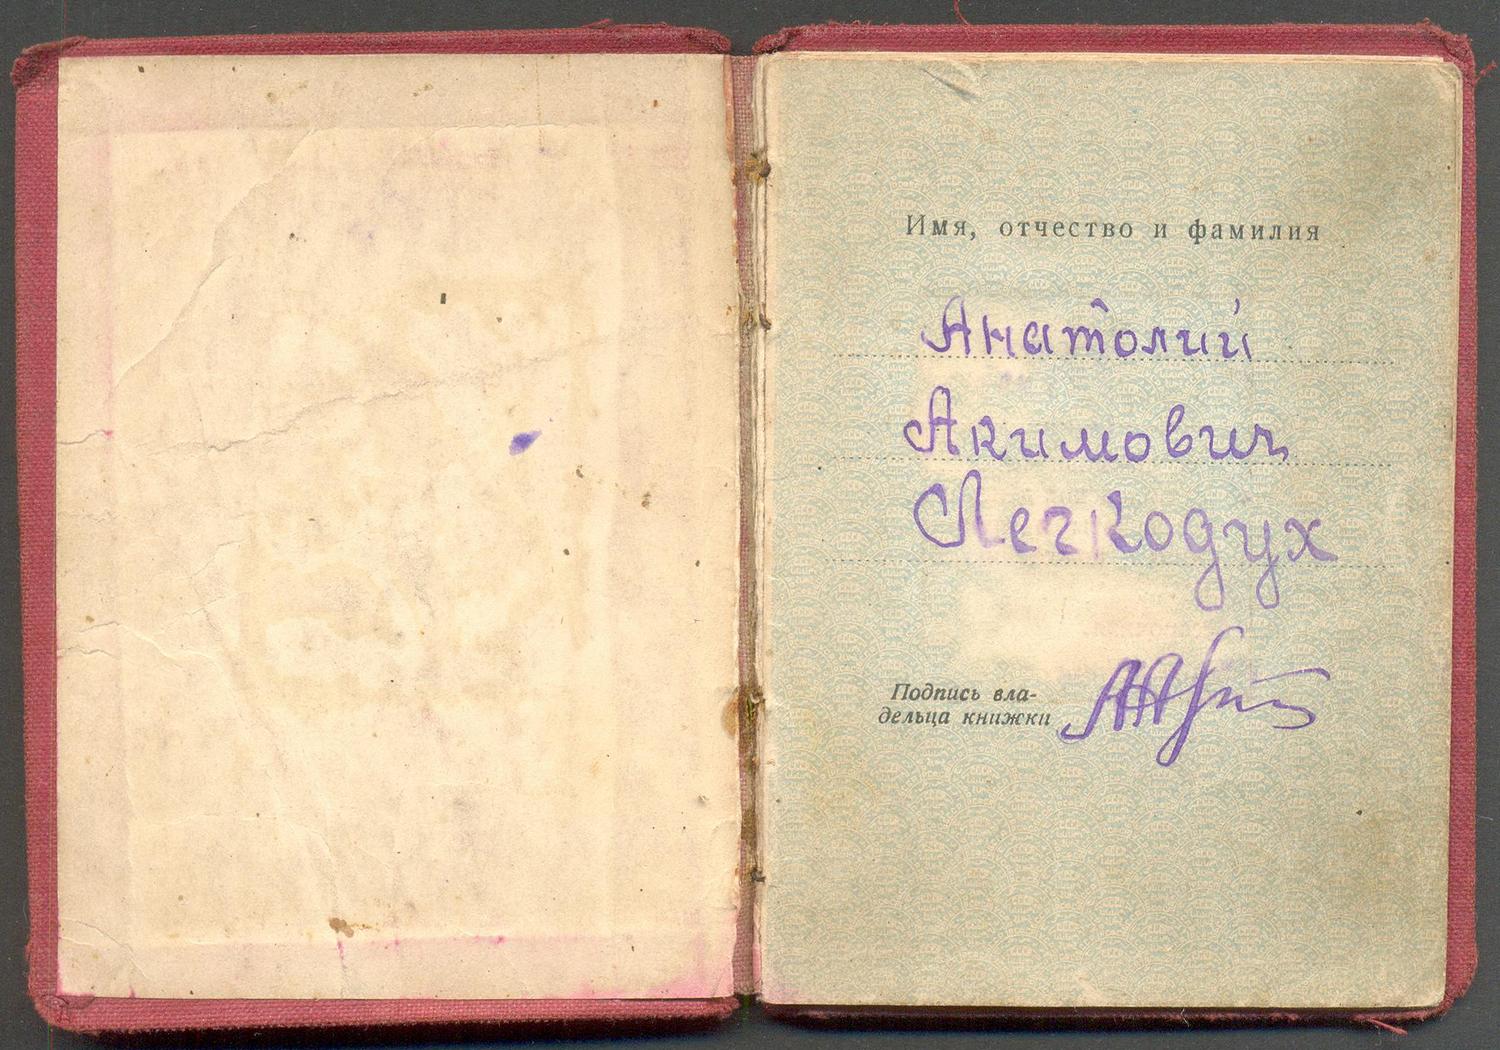 Имя, отчество и фамилия
Анатолий
Акимович
Легкодух
Подпись вла-
дельца книжки